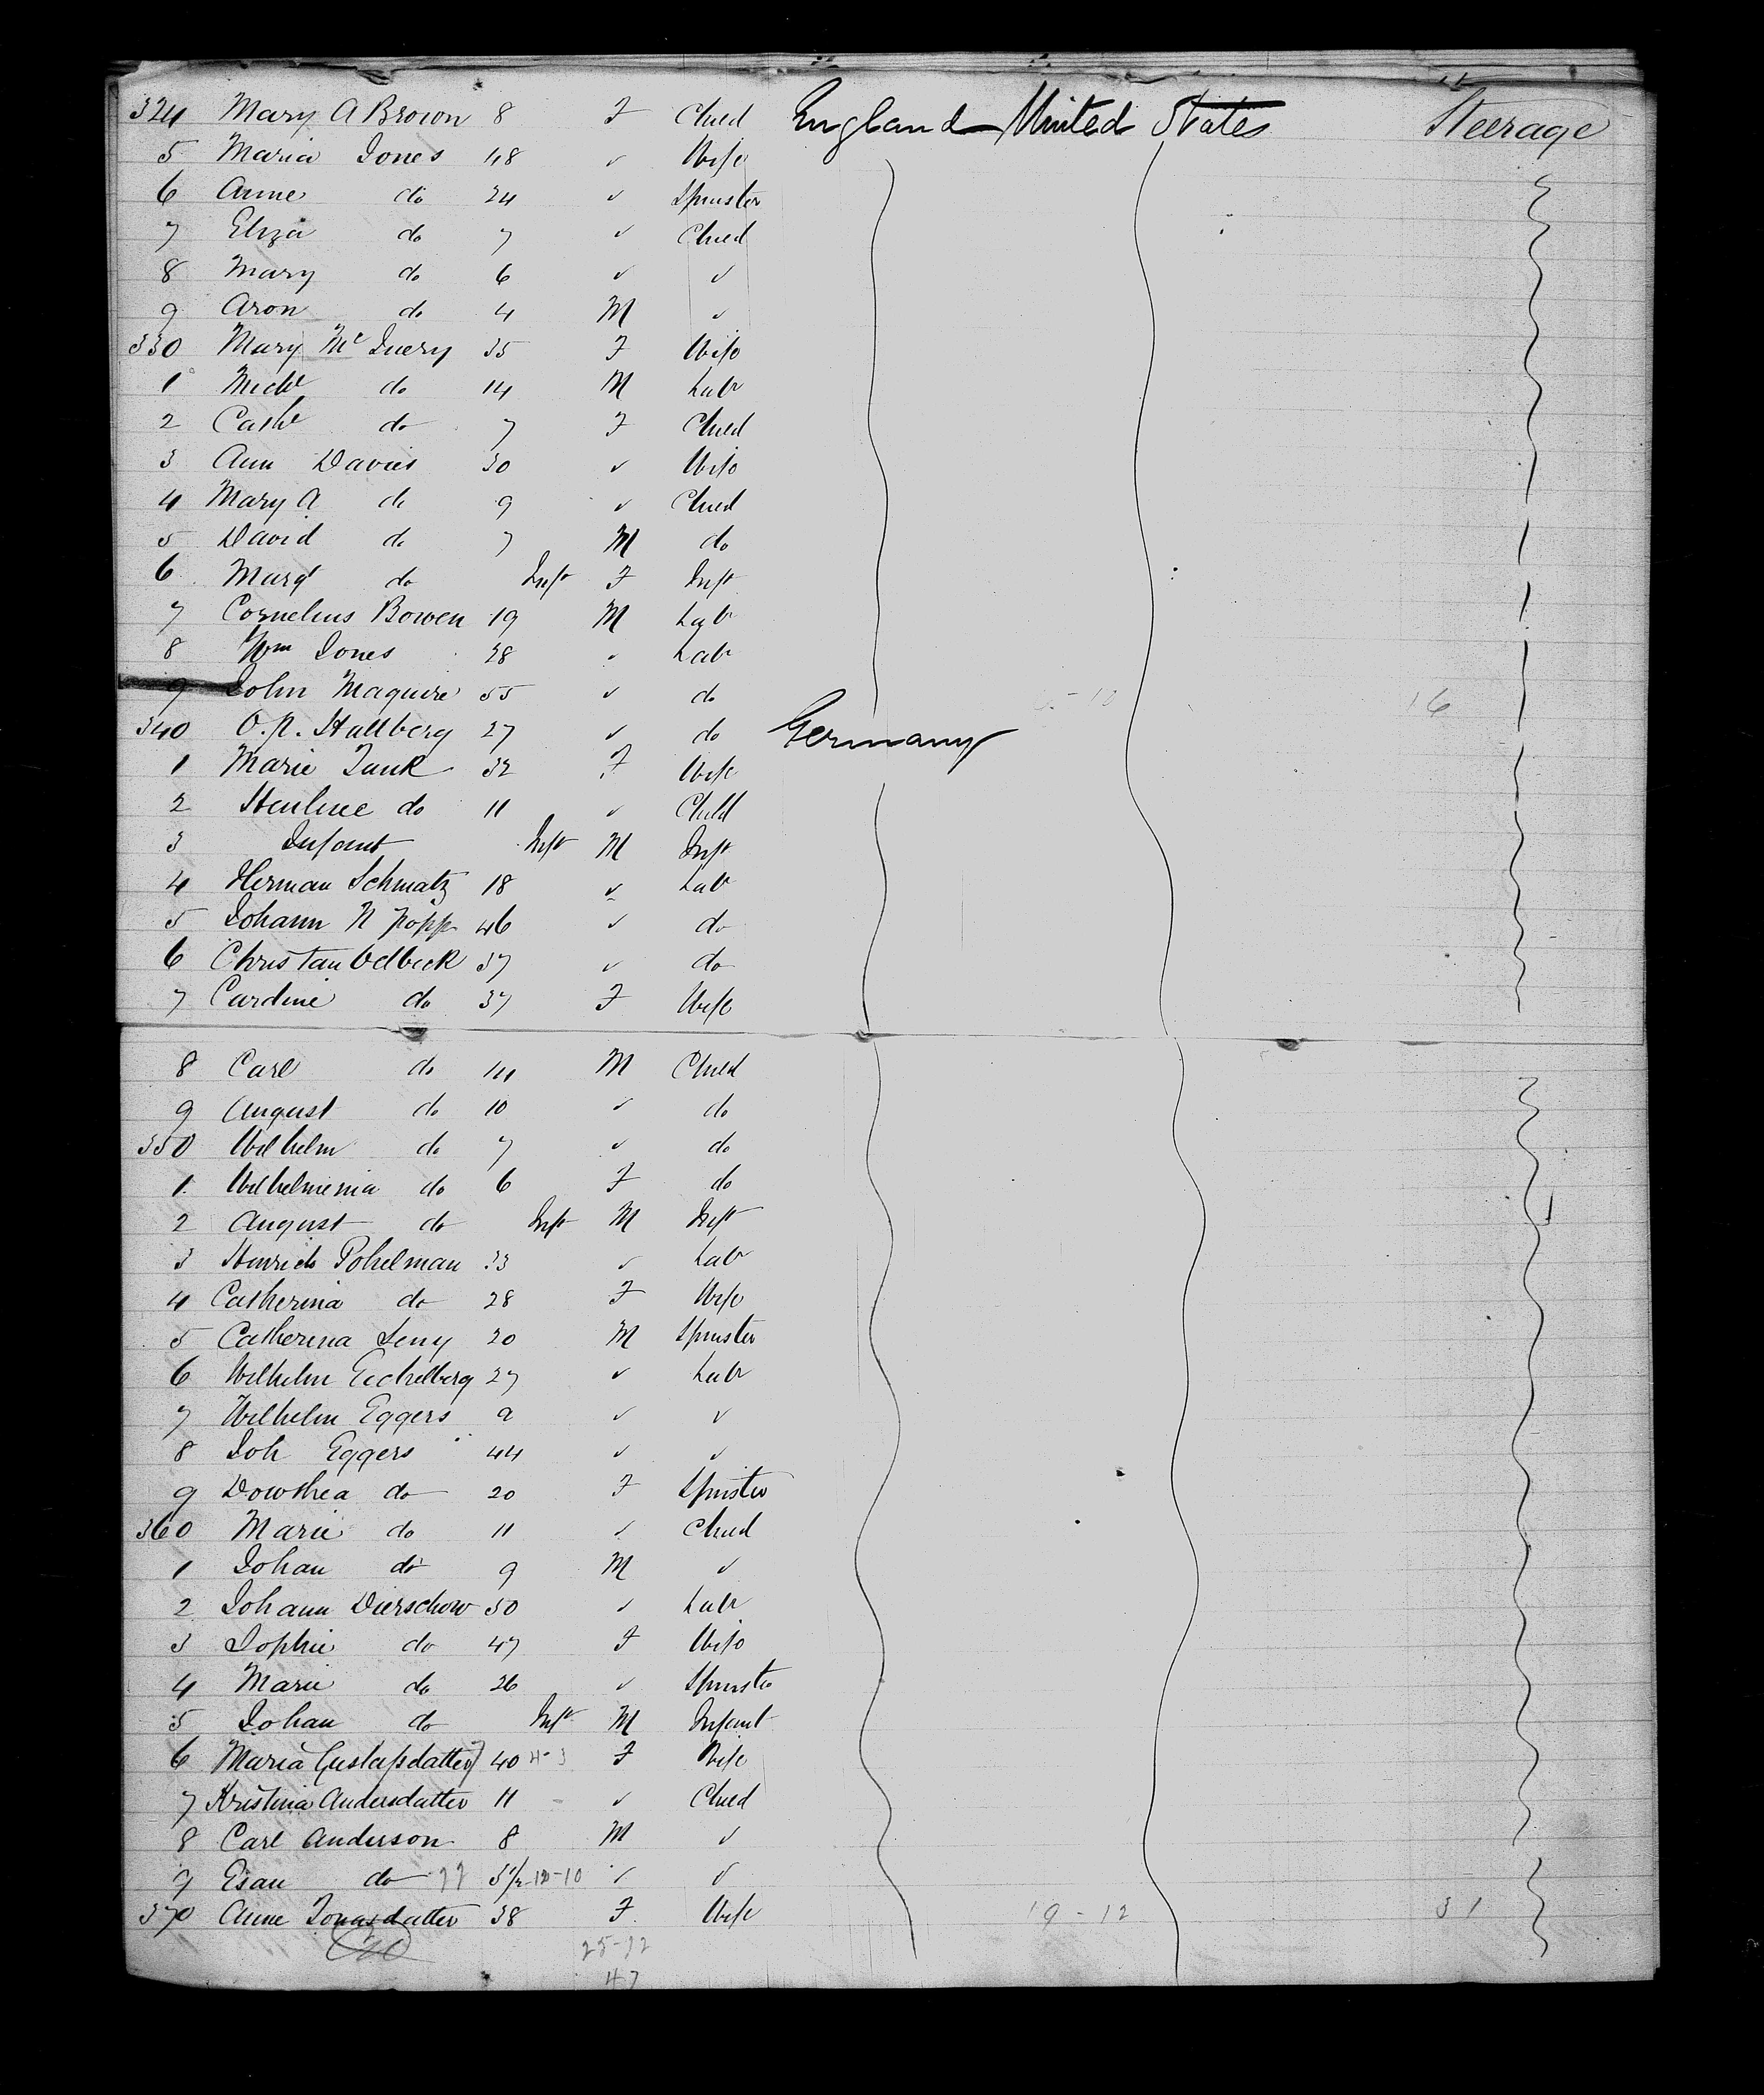 324 Mary A Brown 8 F Child England United States Steerage
5 Maria Jones 48 ✓ Wife
6 Anne do 24 ✓ Spinster
7 Eliza do 7 ✓ Child
8 Mary do 6 ✓ ✓
9 Aron do 4 M ✓
330 Mary Mc Inery 35 F Wife
1 Michl do 14 M Labr
2 Cathe do 7 F Child
3 Ann Davies 30 ✓ Wife
4 Mary A do 9 ✓ Child
5 David do 7 M do
6 Margt do Inft F Inft
7 Cornelius Bowen 19 M Labr
8 Wm Jones 28 ✓ Labr
9 John Maguire 55 ✓ do 16
340 O.P. Hallberg 27 ✓ do Germany
1 Marie Tank 32 F Wife
2 Henline do 11 ✓ Child
3 Infant Inft M Inft
4 Herman Schmatz 18 ✓ Labr
5 Johann N Popp 46 ✓ do
6 Christan Velbeck 37 ✓ do
7 Cardine do 37 F Wife
8 Carl do 14 M Child
9 August do 10 ✓ do
350 Wilhelm do 7 ✓ do
1 Wilhelmenia do 6 F do
2 August do Inft M Inft
3 Henrich Pohelman 33 ✓ Labr
4 Catherina do 28 F Wife
5 Catherina 20 M Spinster
6 Wilhelm Eichelberg 27 ✓ Labr
7 Wilhelm Eggers a ✓ ✓
8 Joh Eggers 44 ✓ ✓
9 Dowthea do 20 F Spinster
360 Marie do 11 ✓ Child
1 Johan do 9 M ✓
2 Johann Dierschow 50 ✓ Labr
3 Sophie do 47 F Wife
4 Marie do 26 ✓ Spinster
5 Johan do Inft M Infant
6 Maria Gustafsdatter 40 F Wife
7 Kristina Andersdatter 11 ✓ Child
8 Carl Anderson 8 M ✓
9 Esau do 5 1/2 12-10 ✓ ✓
370 Anne Jonasdatter 38 F Wife 19-12 31
25-22
47